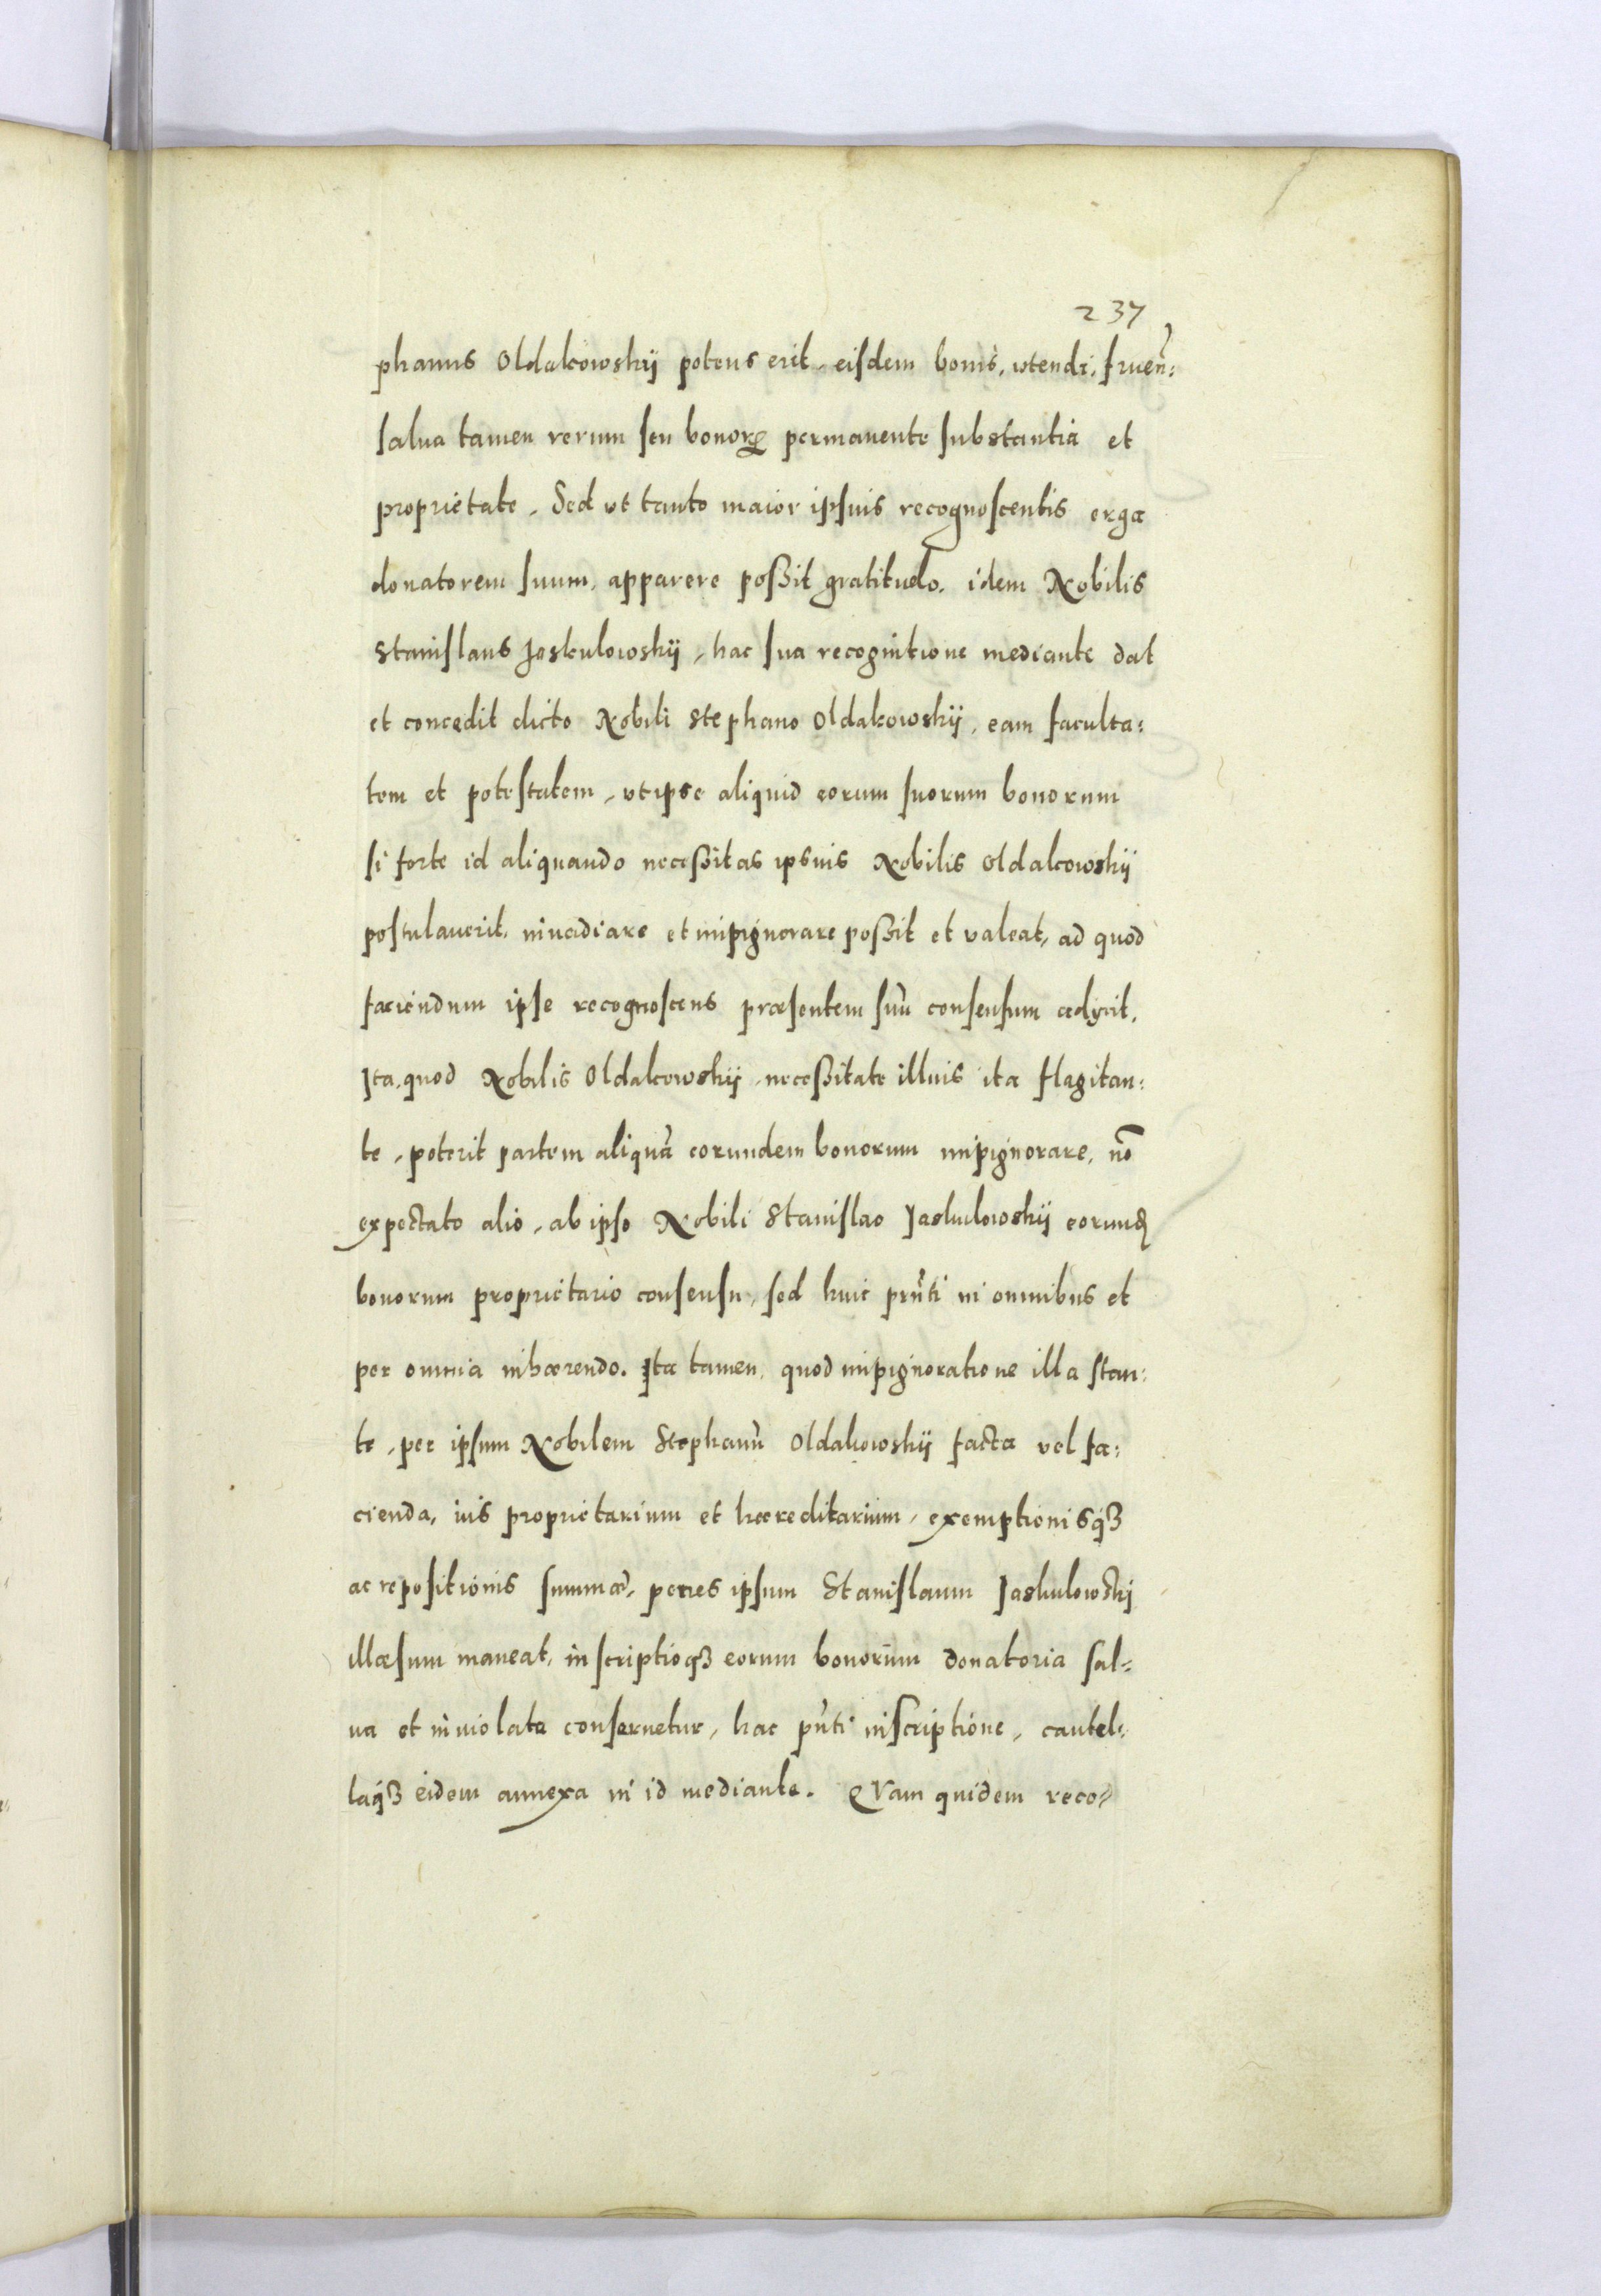 237
phanus Oldakowskij potens erit, eisdem bonis, vtendi, fruen̄:
salua tamen rerum seu bonorꝝ permanente substantia et
proprietate. Sed vt tanto maior ipsius recognoscentis erga
donatorem suum, apparere poßit gratitudo. idem Nobilis
Stanislaus Jaskulowskij, hac sua recognitione mediante dat
et concedit dicto Nobili Stephano Oldakowskij, eam faculta:
tem et potestatem, vt ipse aliquid eorum suorum bonorum
si forte id aliquando neceßitas ipsius Nobilis Oldakowskij
postulauerit, inuadiare et impignorare poßit et valeat, ad quod
faciendum ipse recognoscens præsentem suū consensum adijcit.
Ita, quod Nobilis Oldakowskij, neceßitate illius ita flagitan:
te, poterit partem aliquā eorundem bonorum impignorare, nō
expectato alio, ab ipso Nobili Stanislao Jaskulowskij eorund̄
bonorum proprietario consensu, sed huic prn̄ti in omnibus et
per omnia inhærendo. Ita tamen, quod impignoratione illa stan:
te, per ipsum Nobilem Stephanū Oldakowskij facta vel fa:
cienda, ius proprietarium et hæreditarium, exemptionisqꝫ
ac repositionis summæ, penes ipsum Stanislaum Jaskulowskj
illæsum maneat, inscriptioqꝫ eorum bonorum donatoria sal:
ua et inuiolata conseruetur, hac pn̄ti inscriptione, cautel:
laqꝫ eidem annexa in id mediante. QVam quidem reco: